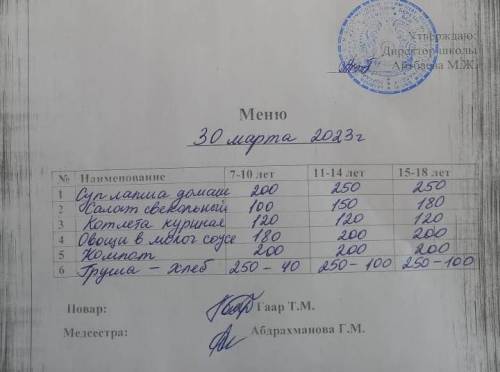 Утверждаю:
Директор школы
М.Ж.
Меню
30 марта 2023г
№ Наименование 7-10 лет 11-14 лет 15-18 лет
1 Суп лапша домаш 200 250 250
2 Салат свекольный 100 150 180
3 Котлета куриная 120 120 120
4 Овощи в молоч соусе 180 200 200
5 Компот 200 200 200
6 Груша - хлеб 250 - 40 250 - 100 250 - 100
Повар: Гаар Т.М.
Медсестра: Абдрахманова Г.М.